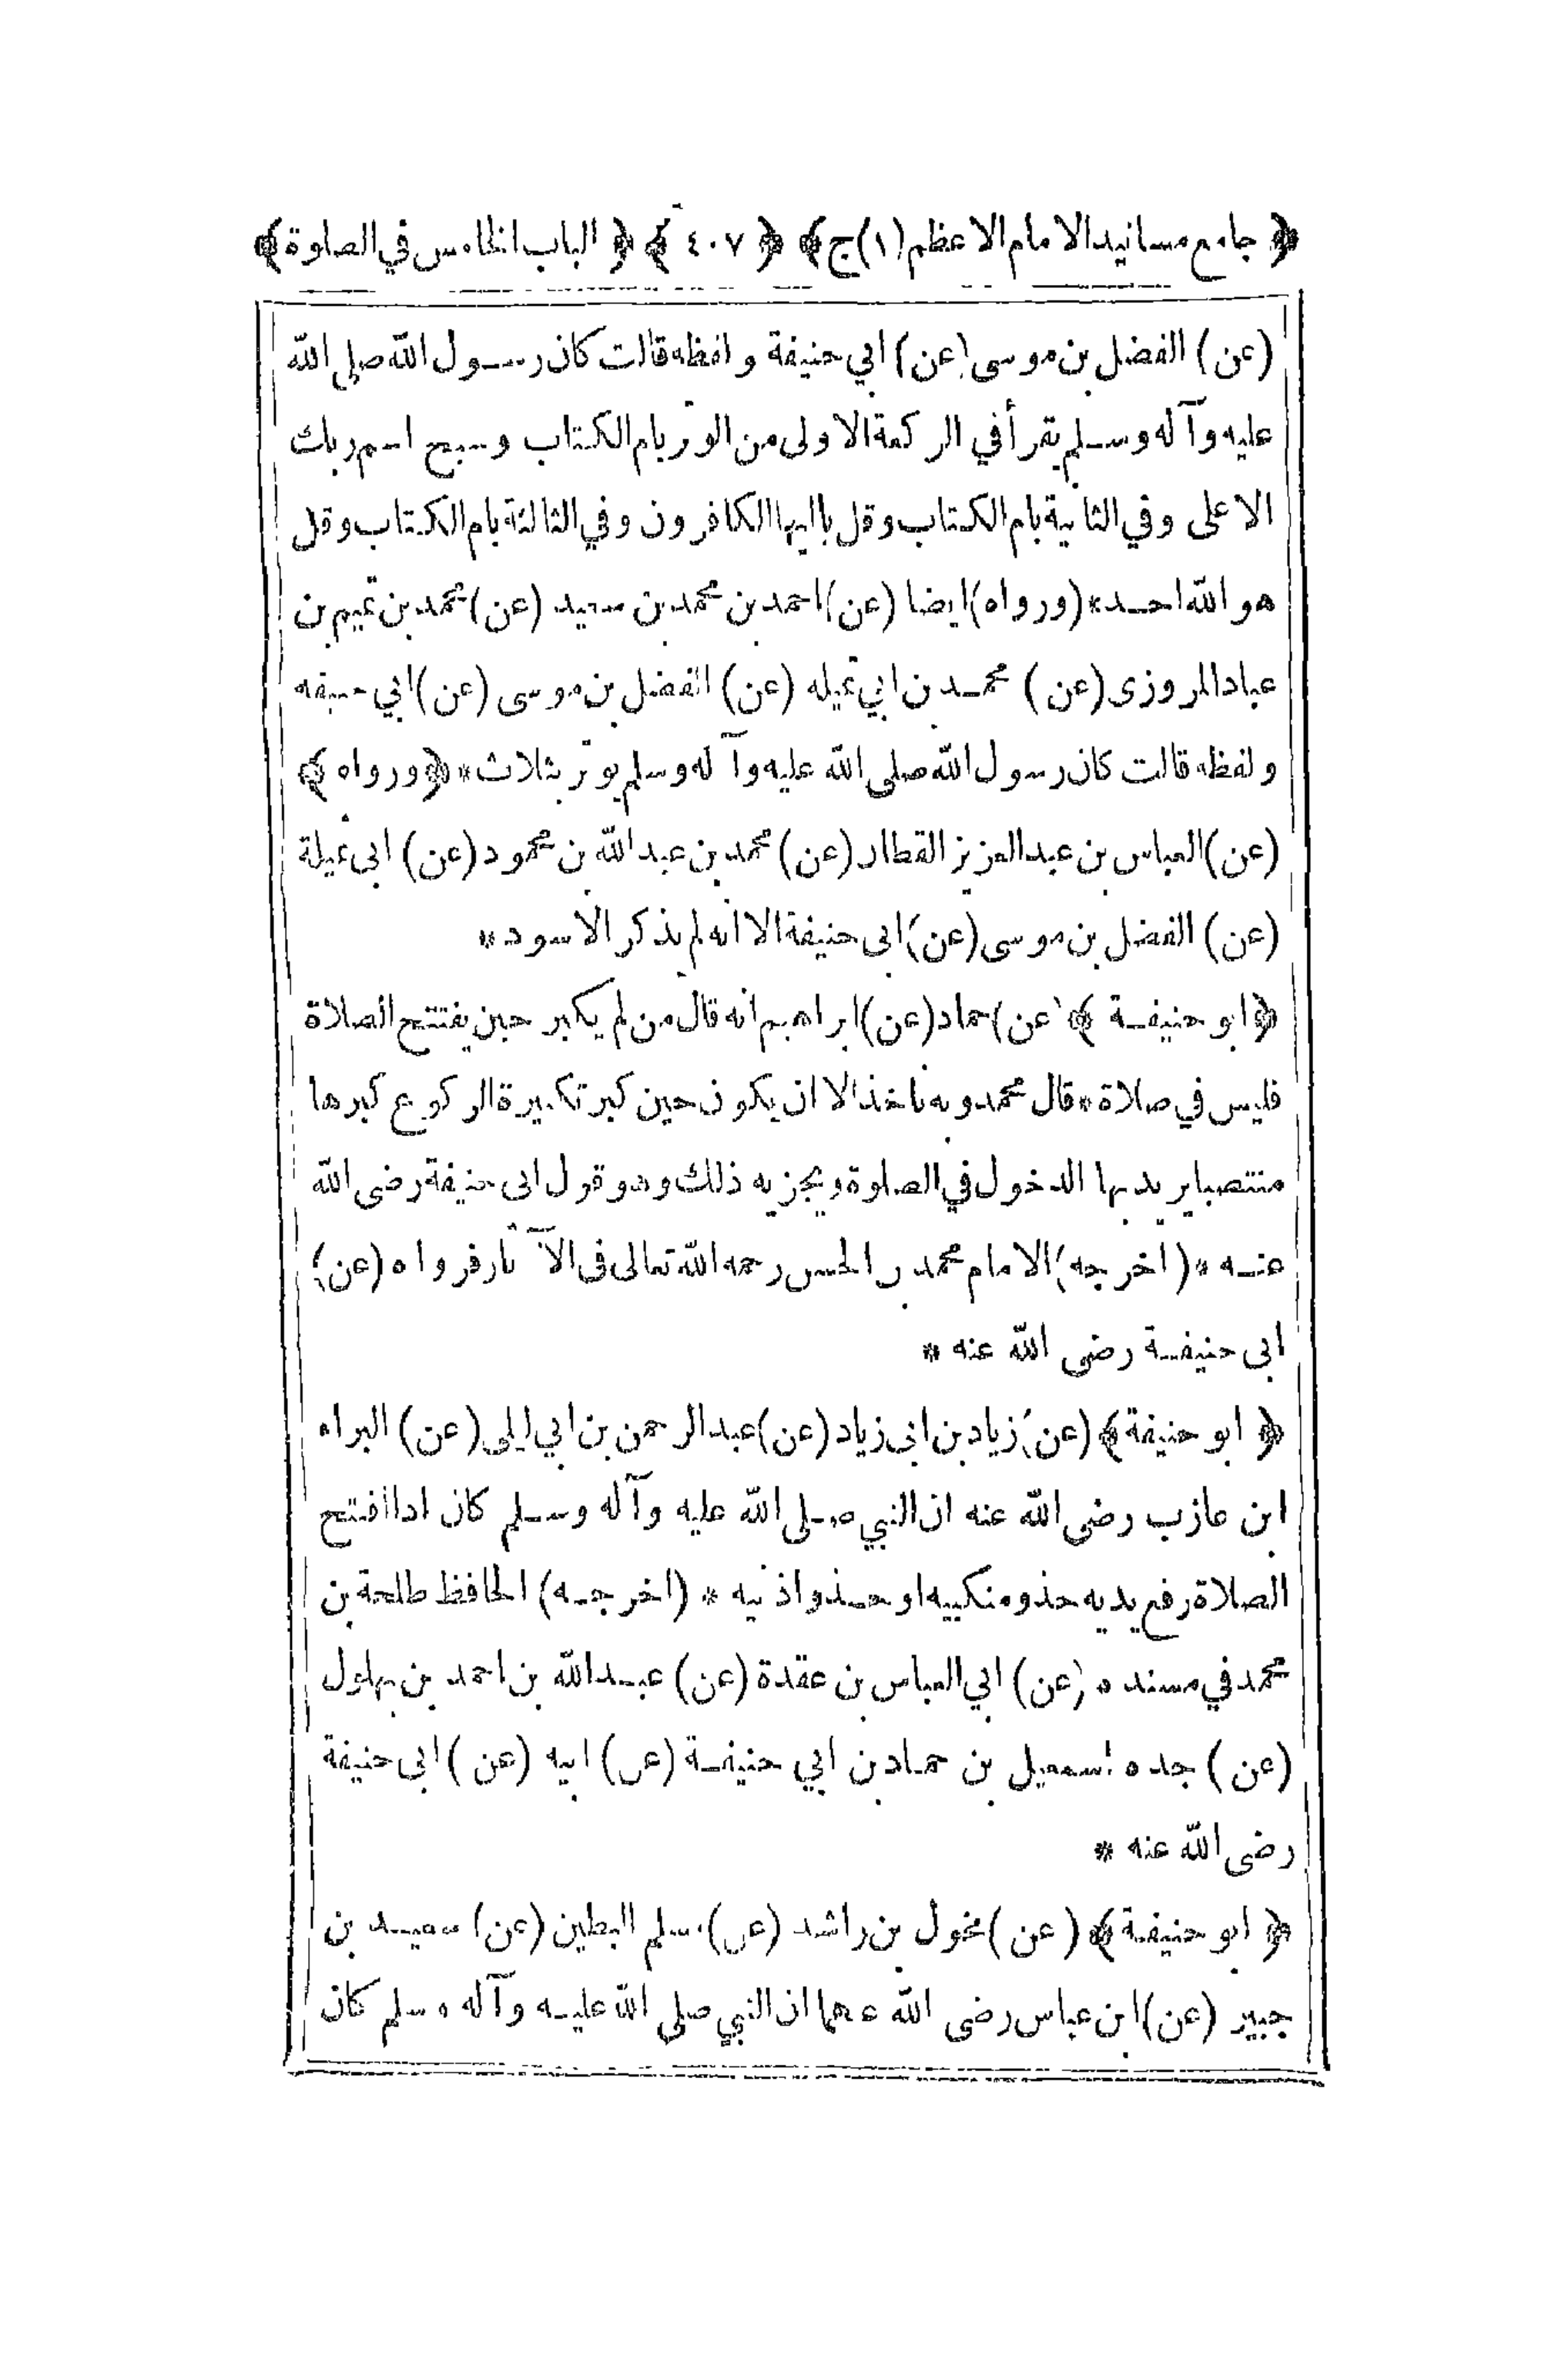 ﴿ جامع مسانيد الامام الاعظم (١) ج ﴾ ﴿ ٤٠٧ ﴾ ﴿ الباب الخامس في الصلوة ﴾
(عن) الفضل بن موسى (عن) ابي حنيفة ولفظه قالت كان رسول الله صلى الله
عليه وآله وسلم يقرأ في الركعة الاولى من الوتر بام الكتاب وسبح اسم ربك
الاعلى وفي الثانية بام الكتاب وقل يا ايها الكافرون وفي الثالثة بام الكتاب وقل
هو الله احد * (ورواه) ايضا (عن) احمد بن محمد بن سعيد (عن) محمد بن تميم بن
عباد المروزى (عن) محمد بن ابي تميله (عن) الفضل بن موسى (عن) ابي حنيفه
ولفظه قالت كان رسول الله صلى الله عليه وآله وسلم يوتر بثلاث * ﴿ ورواه ﴾
(عن) العباس بن عبد العزيز القطان (عن) محمد بن عبد الله بن محمود (عن) ابى تميلة
(عن) الفضل بن موسى (عن) ابى حنيفة الا انه لم يذكر الاسود *
﴿ ابو حنيفة ﴾ (عن) حماد (عن) ابراهيم انه قال من لم يكبر حين يفتتح الصلاة
فليس في صلاة * قال محمد وبه ناخذ الا ان يكون حين كبر تكبيرة الركوع كبرها
منتصبا يريد بها الدخول في الصلوة ويجزيه ذلك وهو قول ابى حنيفة رضى الله
عنه * (اخرجه) الامام محمد بن الحسن رحمه الله تعالى فى الآثار فرواه (عن)
ابى حنيفة رضى الله عنه *
﴿ ابو حنيفة ﴾ (عن) زياد بن ابى زياد (عن) عبد الرحمن بن ابي ليلى (عن) البراء
ابن عازب رضى الله عنه ان النبي صلى الله عليه وآله وسلم كان اذا افتتح
الصلاة رفع يديه حذو منكبيه او حذو اذنيه * (اخرجه) الحافظ طلحة بن
محمد في مسنده (عن) ابي العباس بن عقدة (عن) عبد الله بن احمد بن بهلول
(عن) جده اسمعيل بن حماد بن ابي حنيفة (عن) ابيه (عن) ابى حنيفة
رضى الله عنه *
﴿ ابو حنيفة ﴾ (عن) مخول بن راشد (عن) مسلم البطين (عن) سعيد بن
جبير (عن) ابن عباس رضى الله عنهما ان النبي صلى الله عليه وآله وسلم كان